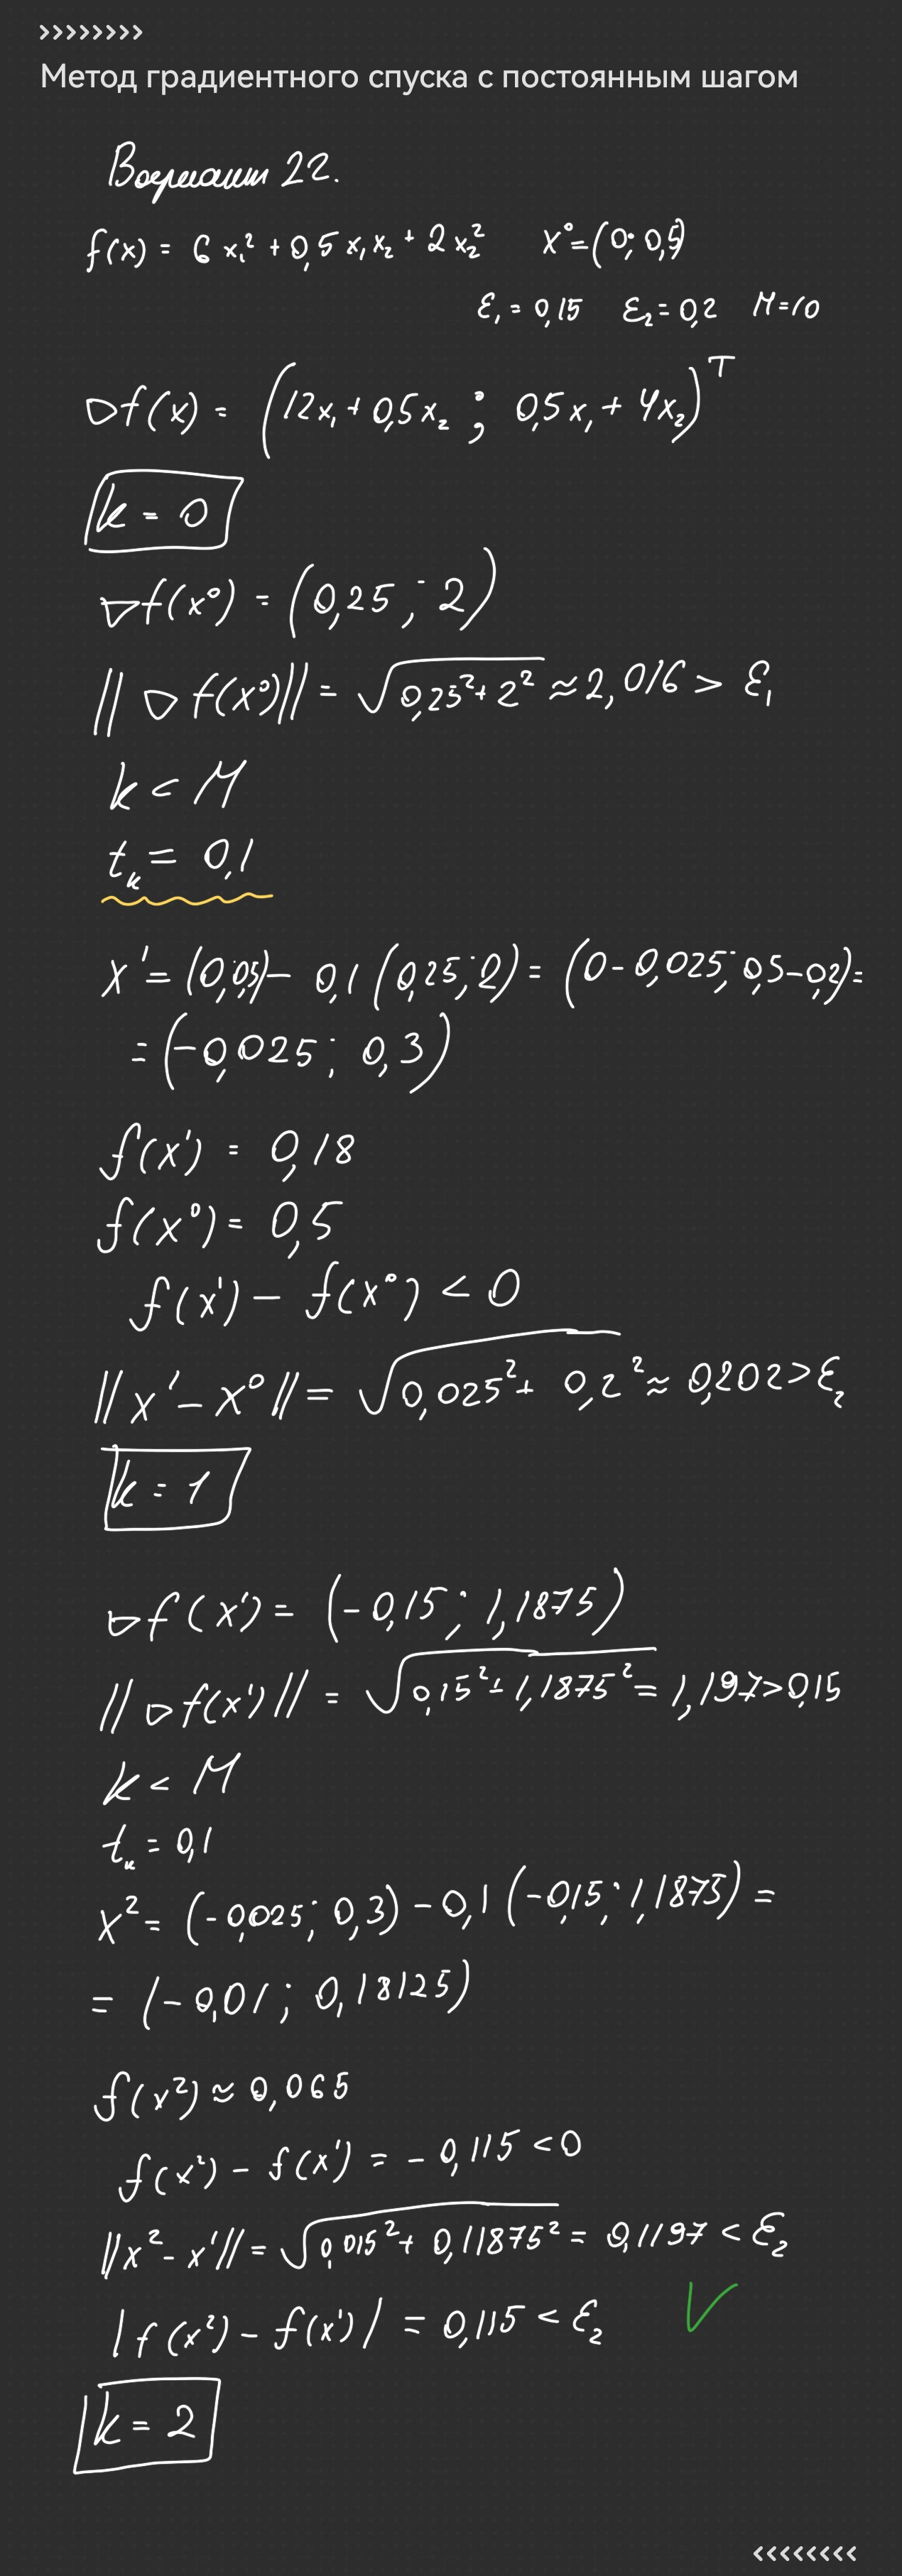 ››››››››
Метод градиентного спуска с постоянным шагом
Вариант 22.
f(x) = 6x₁² + 0,5x₁x₂ + 2x₂² x⁰=(0; 0,5)
ε₁ = 0,15 ε₂ = 0,2 M=10
∇f(x) = (12x₁ + 0,5x₂ ; 0,5x₁ + 4x₂)ᵀ
k = 0
∇f(x⁰) = (0,25 ; 2)
||∇f(x⁰)|| = √(0,25² + 2²) ≈ 2,016 > ε₁
k < M
tₖ = 0,1
x¹ = (0;0,5) − 0,1 (0,25; 2) = (0 − 0,025; 0,5 − 0,2) =
= (−0,025; 0,3)
f(x¹) = 0,18
f(x⁰) = 0,5
f(x¹) − f(x⁰) < 0
||x¹ − x⁰|| = √(0,025² + 0,2²) ≈ 0,202 > ε₂
k = 1
∇f(x¹) = (−0,15; 1,1875)
||∇f(x¹)|| = √(0,15² + 1,1875²) = 1,197 > 0,15
k < M
tₖ = 0,1
x² = (−0,025; 0,3) − 0,1 (−0,15; 1,1875) =
= (−0,01; 0,18125)
f(x²) ≈ 0,065
f(x²) − f(x¹) = −0,115 < 0
||x² − x¹|| = √(0,015² + 0,11875²) = 0,1197 < ε₂
|f(x²) − f(x¹)| = 0,115 < ε₂ V
k = 2
‹‹‹‹‹‹‹‹